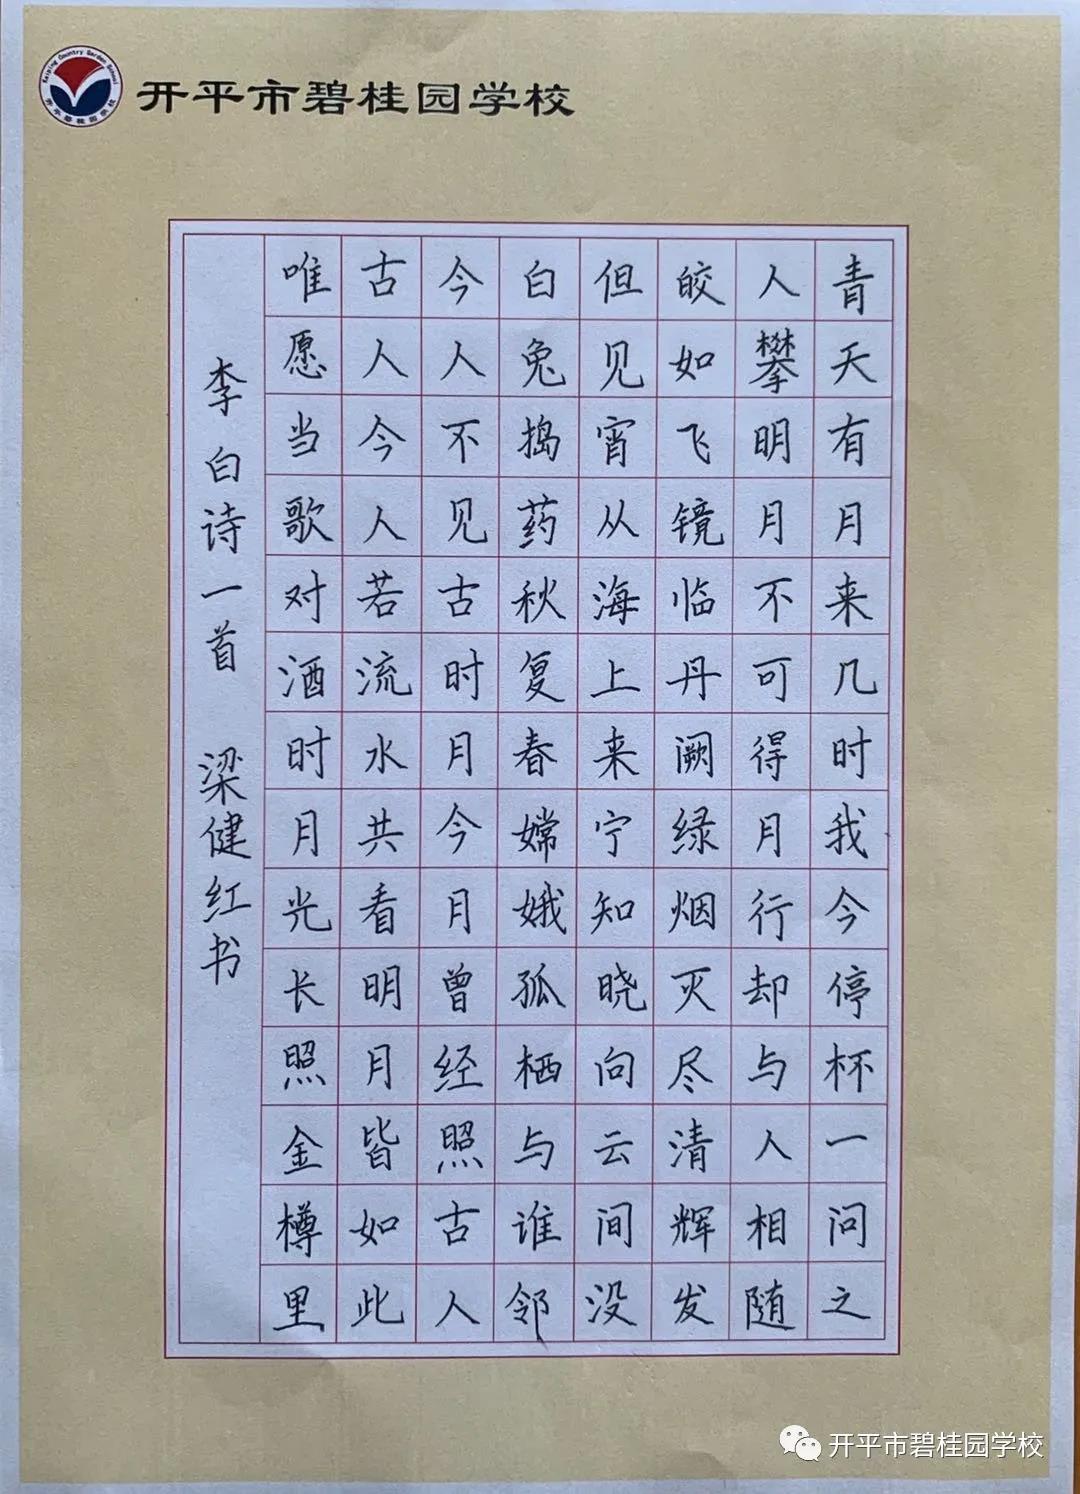 Kaiping Country Garden School
开平碧桂园学校
开平市碧桂园学校
青天有月来几时我今停杯一问之
人攀明月不可得月行却与人相随
皎如飞镜临丹阙绿烟灭尽清辉发
但见宵从海上来宁知晓向云间没
白兔捣药秋复春嫦娥孤栖与谁邻
今人不见古时月今月曾经照古人
古人今人若流水共看明月皆如此
唯愿当歌对酒时月光长照金樽里
李白诗一首 梁健红书
开平市碧桂园学校